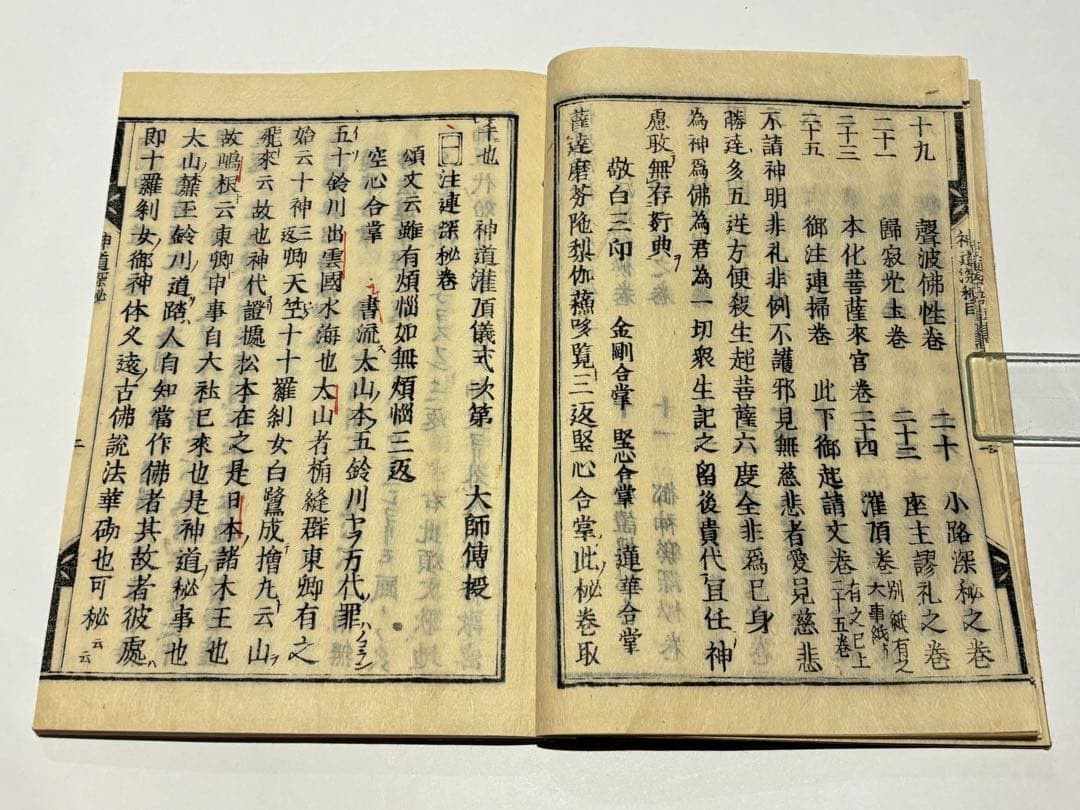 十九 聲波佛性卷 二十 小路深秘之卷
二十一 歸寂光土卷 二十二 座主謬礼之卷
二十三 本化菩薩來宮卷 二十四 灌頂卷 別紙有之 大事紙ニ
二十五 御注連掃卷 此下御起請文卷 有之已上 二十五卷
不請神明非礼非例不護邪見無慈悲者愛見慈悲
勝達多五逆方便殺生超菩薩六度全非爲已身
為神爲佛為君為一切衆生記之留後貴代且任神
慮敢無存芳典ヲ
敬白三印 金剛合掌 堅心合掌 蓮華合掌
薩達磨芬陁梨伽蘓哆覽三返堅心合掌此秘卷取
年也 神道灌頂儀式次第 大師傳授
一 注連深秘卷
頌文云雖有煩惱如無煩惱三返
空心合掌 書流太山本五鈴川ヤヲ万代罪
五十鈴川出雲國水海也太山者楯縫群東卿有之
始云十神三卿天竺十十羅刹女白鷺成擔九云山
飛來云故也神代證據松本在之是日本諸木王也
故嶋根云東卿中事自大社已來也是神道秘事也
太山麓至鈴川道踏人自知當作佛者其故者彼處
即十羅刹女御神体久遠古佛說法華砌也可秘云云
神道深秘